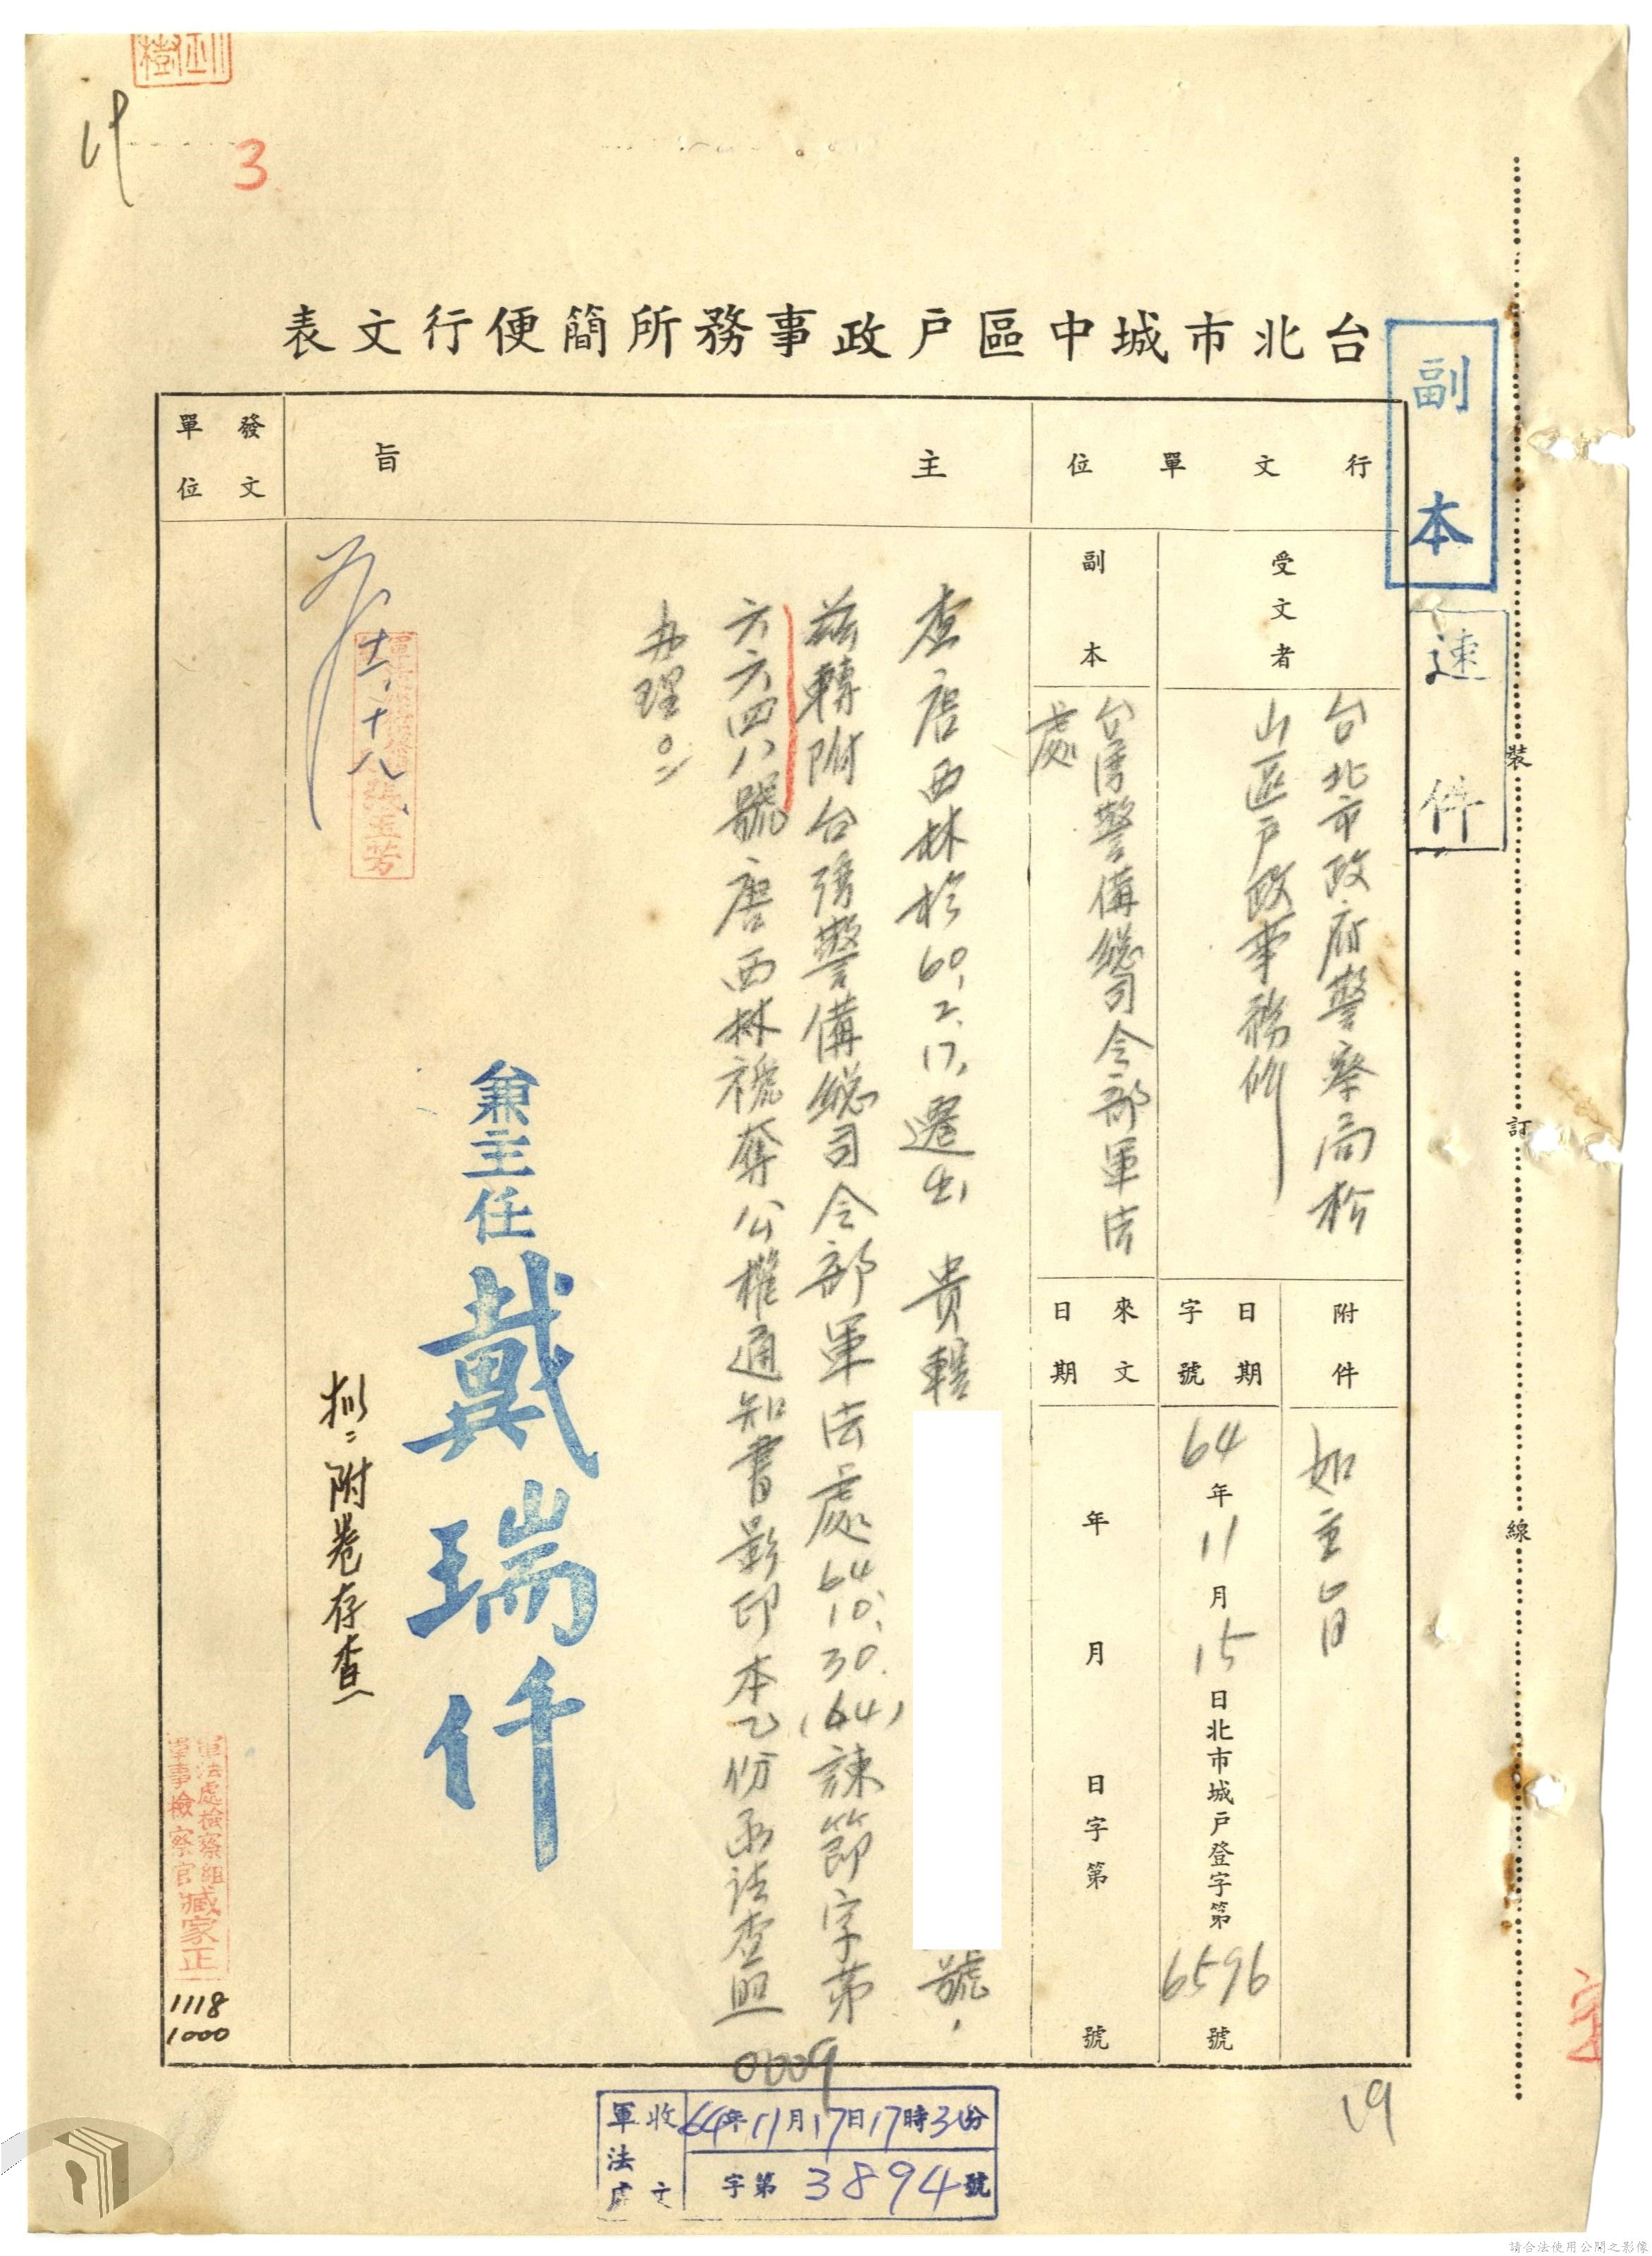 樹
3
台北市城中區戶政事務所簡便行文表
副本
速件
裝
訂
線
行文單位
受文者
台北市政府警察局松
山區戶政事務所
副本
台灣警備總司令部軍法
處
附件
如主旨
日期
字號
64年11月15日北市城戶登字第6596號
來文
日期
年月日字第號
主旨
查唐西林於60.2.17.遷出 貴轄
號,
茲轉附台灣警備總司令部軍法處64.10.30.(64)諫節字第
六六四八號唐西林褫奪公權通知書影印本乙份函請查照
办理。
兼主任 戴瑞仟
十一、十八
張玉芳
擬:附卷存查
發文
單位
軍法處檢察組
軍事檢察官 臧家正
1118
1000
0009
19
軍法處
收文
64年11月17日17時3分
字第3894號
請合法使用公開之影像